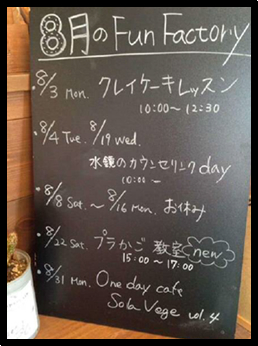 8月のFun Factory
・8/3 Mon. クレイケーキレッスン
10:00〜12:30
・8/4 Tue. 8/19 Wed.
水鏡のカウンセリングday
10:00〜
・8/8 Sat.〜8/16 Mon. お休み
・8/22 Sat. プラかご教室 new
15:00〜17:00
・8/31 Mon. One day cafe
Sola Vege vol.4